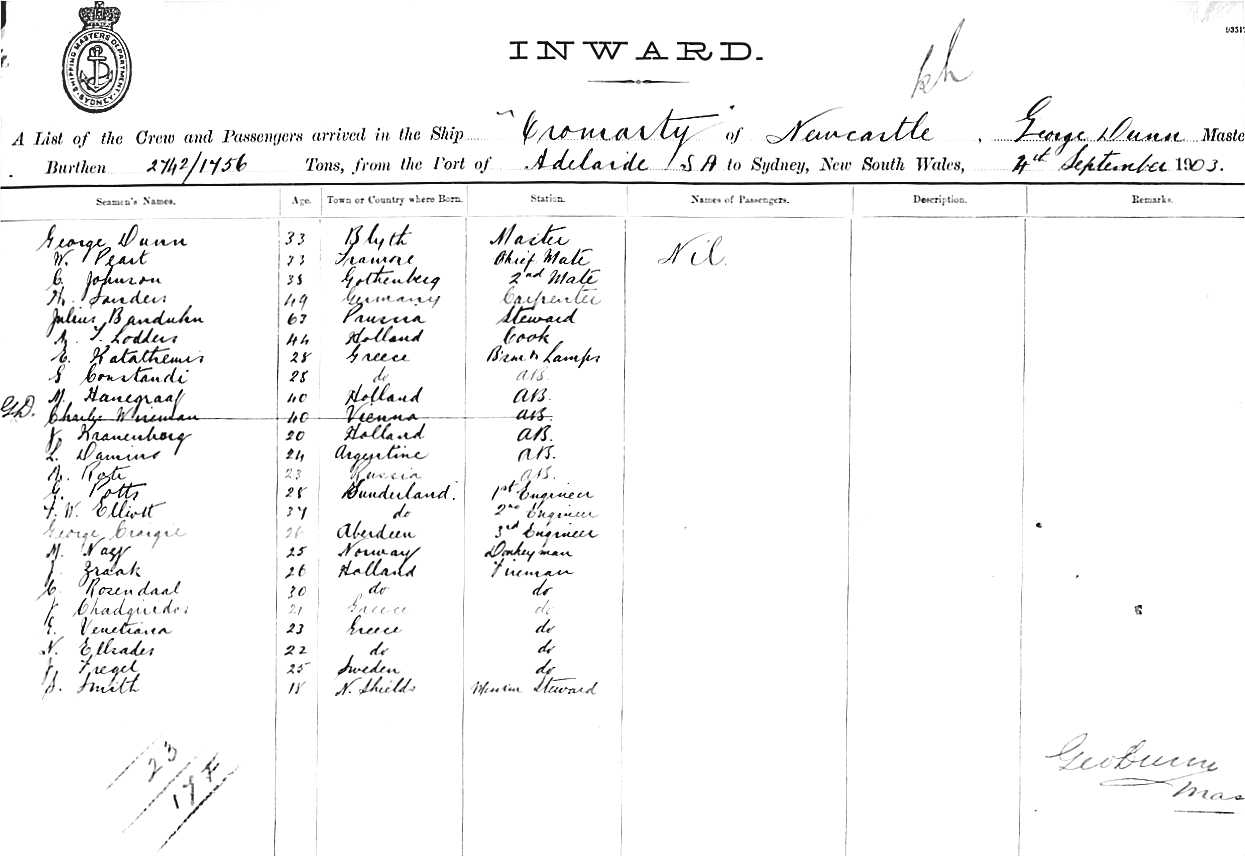 SHIPPING MASTERS DEPARTMENT
SYDNEY
INWARD.
A List of the Crew and Passengers arrived in the Ship "Cromarty" of Newcastle, George Dunn Maste
Burthen 2742/1756 Tons, from the Port of Adelaide SA to Sydney, New South Wales, 4th September 1903.
Seamen's Names. Age. Town or Country where Born. Station. Names of Passengers. Description. Remarks.
George Dunn 33 Blyth Master Nil.
W. Peart 33 Tramore Chief Mate
C. Johnson 38 Gothenberg 2nd Mate
Sanders 49 Germany Carpenter
Julius Banduhn 63 Prussia Steward
Lodders 44 Holland Cook
E. Katathemis 28 Greece Bsmn Lamps
S Constandi 28 do AB.
M. Hanegraaf 40 Holland AB.
GD. Charlie Wineman 40 Vienna AB.
Kranenberg 20 Holland AB.
L. Damino 24 Argentine AB.
23 Russia AB.
G. Potts 28 Sunderland. 1st Engineer
F. W. Elliott 34 do 2nd Engineer
George Craigie 26 Aberdeen 3rd Engineer
M. Nagy 25 Norway Donkeyman
Zraak 26 Holland Fireman
C. Rosendaal 30 do do
Chadguidos 21 Greece do
E. Venetiana 23 Greece do
N. Ellsades 22 do do
Fregel 25 Sweden do
S. Smith 18 N. Shields Steward
23
Geo Dunn
Mas